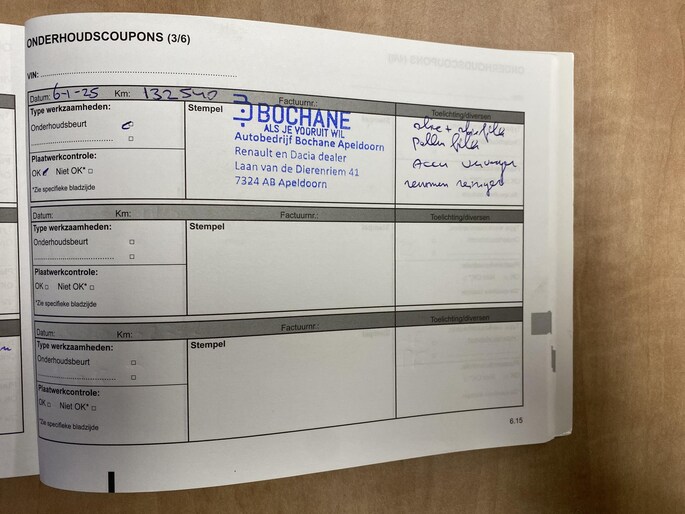 ONDERHOUDSCOUPONS (3/6)
VIN:
Datum: 6-1-25 Km: 132540 Factuurnr.:
Type werkzaamheden:
Onderhoudsbeurt
Plaatwerkcontrole:
OK Niet OK*
*Zie specifieke bladzijde
Stempel
BOCHANE
ALS JE VOORUIT WIL
Autobedrijf Bochane Apeldoorn
Renault en Dacia dealer
Laan van de Dierenriem 41
7324 AB Apeldoorn
Toelichting/diversen
olie + oliefilter
Pollen filter
Accu vervangen
remmen reinigen
Datum: Km: Factuurnr.:
Type werkzaamheden:
Onderhoudsbeurt
Plaatwerkcontrole:
OK Niet OK*
*Zie specifieke bladzijde
Stempel
Toelichting/diversen
Datum: Km: Factuurnr.:
Type werkzaamheden:
Onderhoudsbeurt
Plaatwerkcontrole:
OK Niet OK*
*Zie specifieke bladzijde
Stempel
Toelichting/diversen
6.15